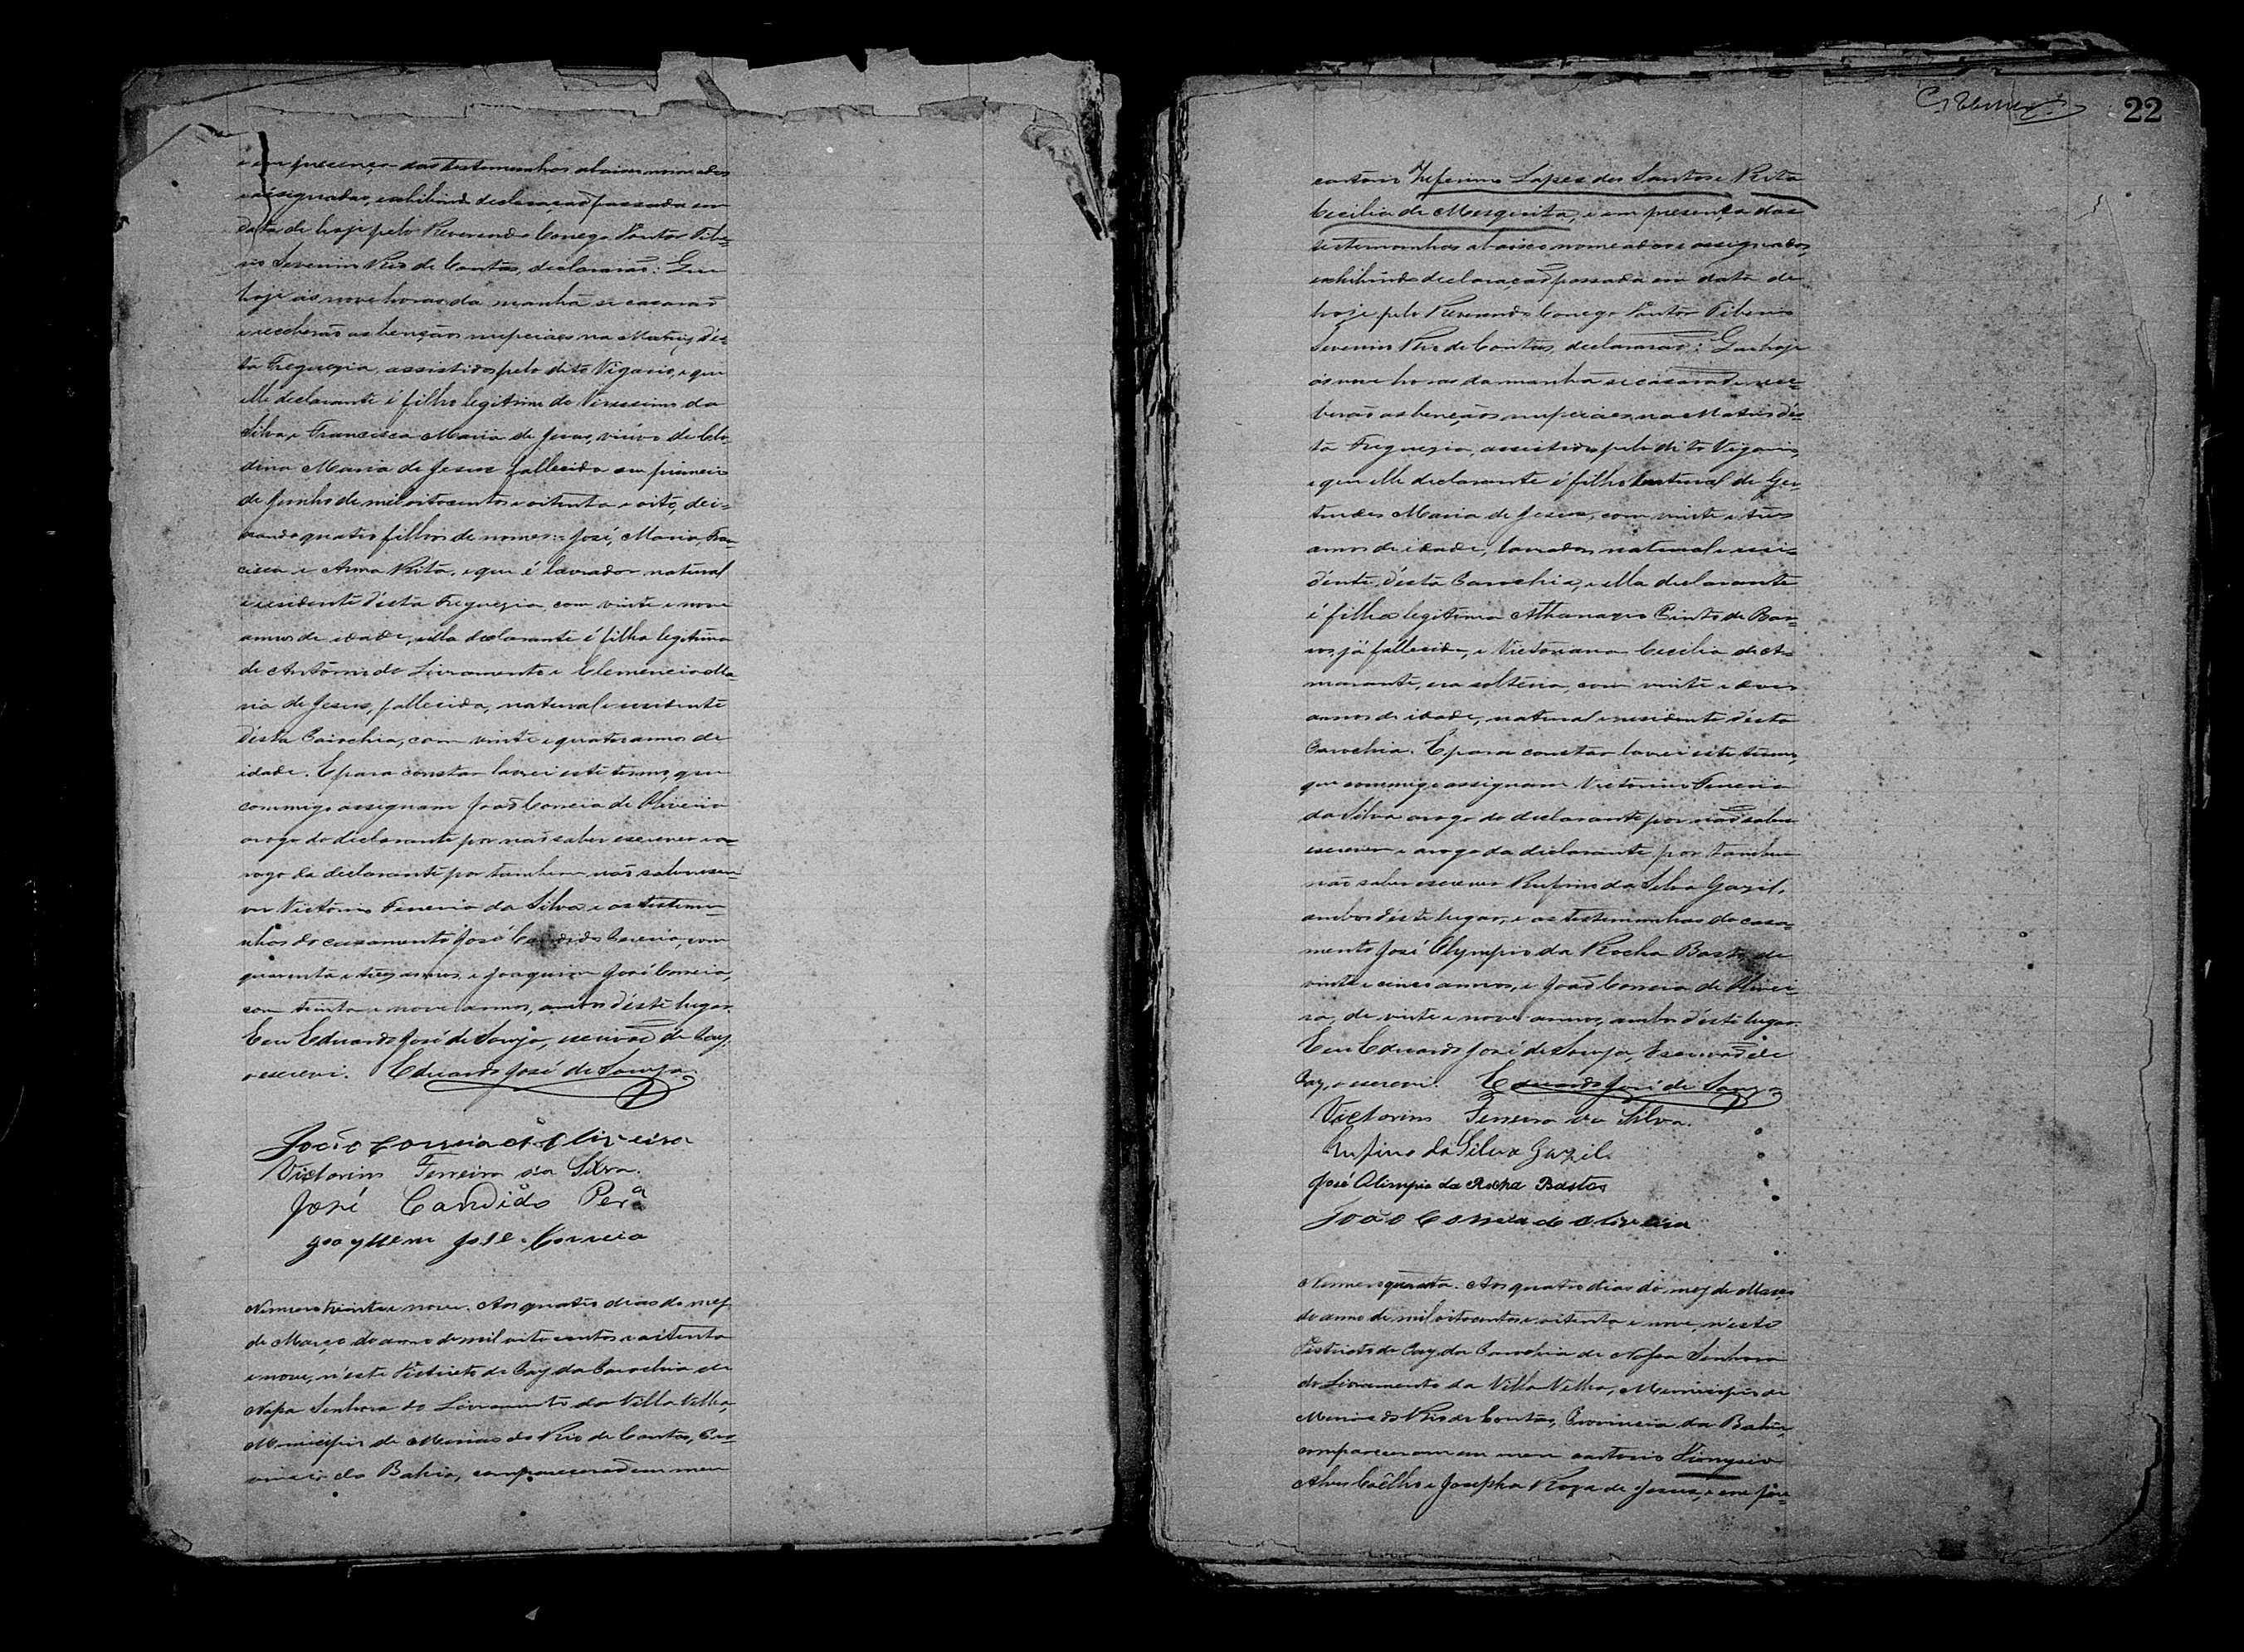 e em presença das testemunhas abaixo nomeadas
e assignadas, exhibindo declaração passada em
data de hoje pelo Reverendo Conego Doutor Tibe-
rio Severino Rio de Contas, declararão: Que
hoje ás nove horas da manhã se casarão
e receberão as bençãos nupciaes na Matriz dés-
ta Freguezia, assistidos pelo dito Vigario, e que
elle declarante é filho legitimo de Verissimo da
Silva e Francisca Maria de Jesus, viúvo de Clo-
dina Maria de Jesus fallecida em primeiro
de Junho de mil oitocentos e oitenta e oito, dei-
xando quatro filhos de nomes: José, Maria, Fran-
cisca e Anna Rita, e que é lavrador natural
e residente désta Freguezia, com vinte e nove
annos de idade, e ella declarante é filha legitima
de Antonio do Livramento e Clemencia Ma-
ria de Jesus, fallecida, natural e residente
désta Parochia, com vinte e quatro annos de
idade. E para constar lavrei este termo, que
commigo assignam João Correia de Oliveira
a rogo do declarante por não saber escrever e a
rogo da declarante por tambem não saber escre-
ver Victorino Ferreira da Silva e as testemu-
nhas do casamento José Candido Pereira, com
quarenta e tres annos, e Joaquim José Correia,
com trinta e nove annos, ambos déste lugar.
E eu Eduardo José de Souza, escrivão de Paz,
o escrevi. Eduardo José de Souza
João Correia de Oliveira
Victorino Ferreira da Silva.
José Candido Perª
Joaquem José Correia
Numero trinta e nove. Aos quatro dias do mez
de Março do anno de mil oito centos e oitenta
e nove, n'éste Districto de Paz da Parochia de
Nossa Senhora do Livramento da Villa Velha,
Municipio de Minas do Rio de Contas, Pro-
vincia da Bahia, comparecerão em meu
22
cartorio Zeferino Lopes dos Santos e Rita
Cecilia de Mesquita, e em presença das
testemunhas abaixo nomeadas e assignadas,
exhibindo declaração passada em data de
hoje pelo Reverendo Conego Doutor Tiberio
Severino Rio de Contas, declararão: Que hoje
ás nove horas da manhã se casarão e rece-
berão as bençãos nupciaes na Matriz dés-
ta Freguezia, assistidos pelo dito Vigario,
e que elle declarante é filho natural de Ger-
trudes Maria de Jesus, com vinte e tres
annos de idade, lavrador, natural e resi-
dente désta Parochia, e ella declarante
é filha legitima Athanazio Pinto de Bar-
ros, já fallecido, e Victoriana Cecilia de A-
marante, era solteira, com vinte e dois
annos de idade, natural e residente désta
Parochia. E para constar lavrei este termo,
que commigo assignam Victorino Ferreira
da Silva a rogo do declarante por não saber
escrever e a rogo da declarante por tambem
não saber escrever Rufino da Silva Gazil,
ambos déste lugar, e as testemunhas do casa-
mento José Olympio da Rocha Bastos de
vinte e cinco annos, e João Correia de Olivei-
ra, de vinte e nove annos, ambos déste lugar.
E eu Eduardo José de Souza, Escrivão de
Paz, o escrevi. Eduardo José de Souza
Victorino Ferreira da Silva.
Rufino da Silva Gazil
José Olimpio da Rocha Bastos
João Correia de Oliveira
Numero quarenta. Aos quatro dias do mez de Março
do anno de mil oitocentos e oitenta e nove, n'este
Districto de Paz da Parochia de Nossa Senhora
do Livramento da Villa Velha, Municipio de
Minas do Rio de Contas, Provincia da Bahia,
compareceram em meu cartorio Dionyzio
Alves Coêlho e Josepha Roza de Jesus, e em pre-